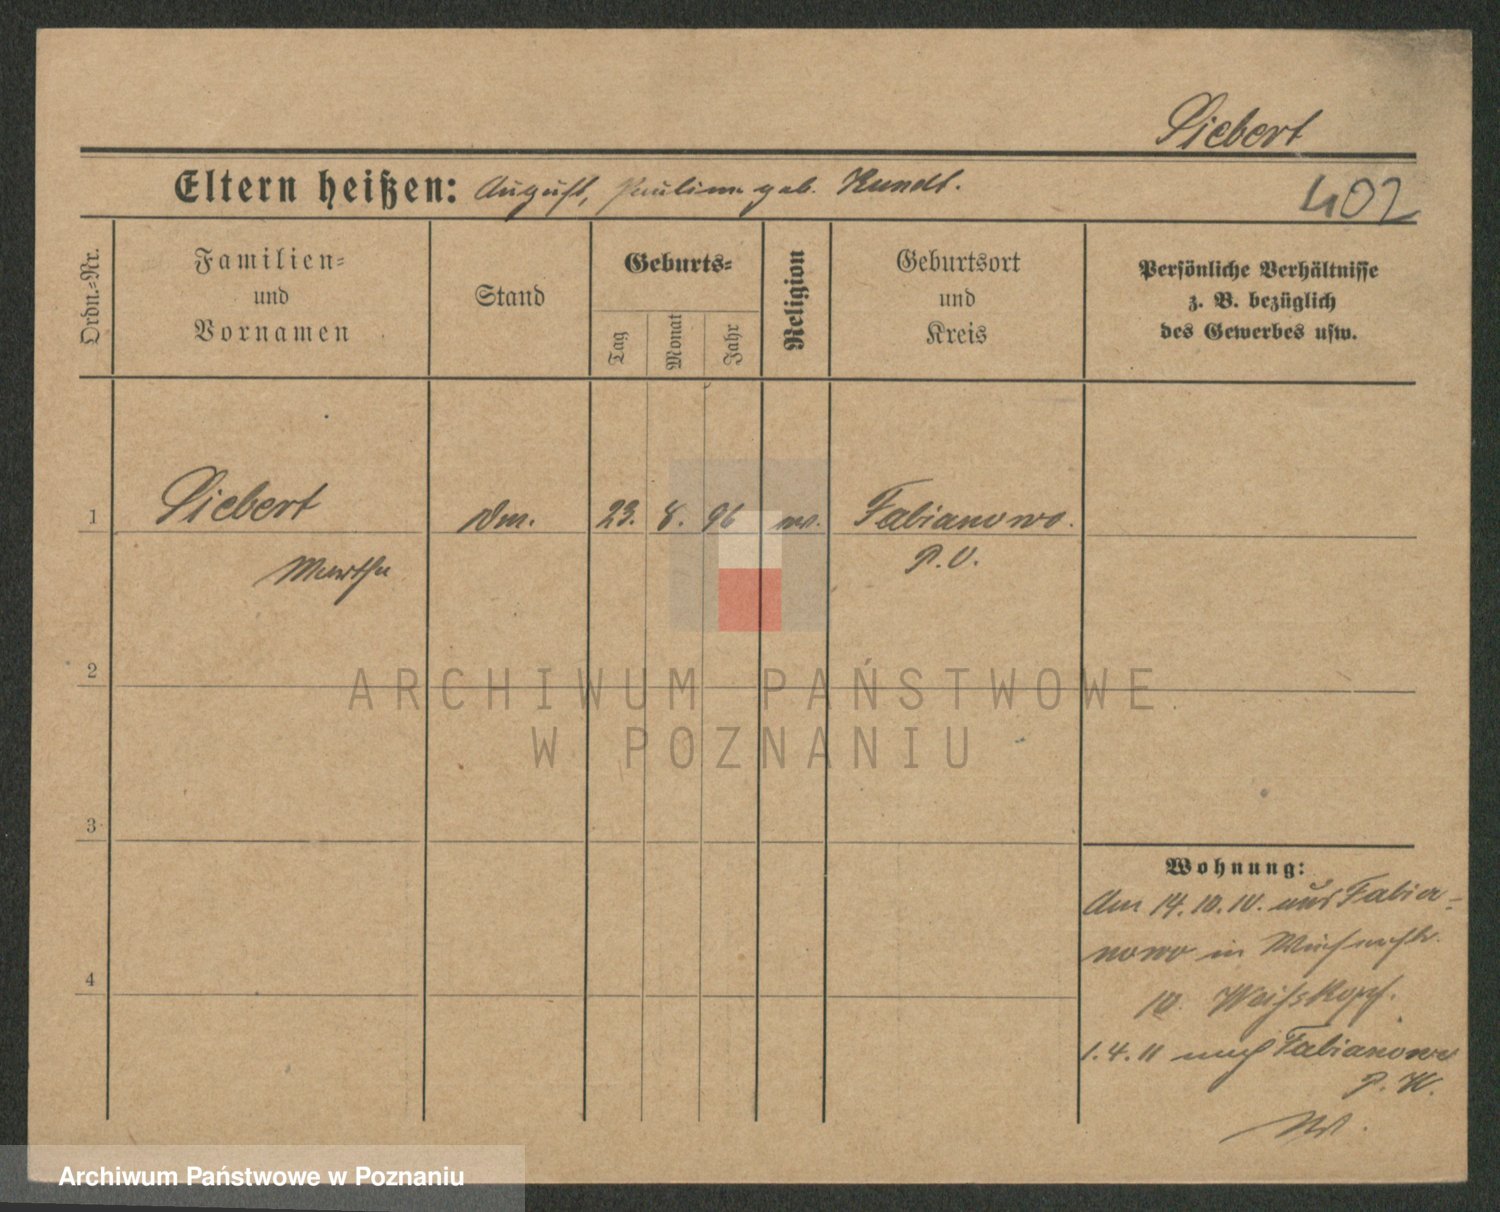 Siebert
Eltern heißen: August, Pauline geb. Kundt.
402
Ordn.-Nr.
Familien-
und
Vornamen
Stand
Geburts-
Tag
Monat
Jahr
Religion
Geburtsort
und
Kreis
Persönliche Verhältnisse
z. B. bezüglich
des Gewerbes usw.
1 Siebert 23. 8. 96 Fabianowo.
Martha P. O.
2
ARCHIWUM PAŃSTWOWE
W POZNANIU
3
Wohnung:
Am 14.10.10. aus Fabia-
nowo in
4
10. Weißkopf.
1.4.11 nach Fabianowo
P. W.
Archiwum Państwowe w Poznaniu